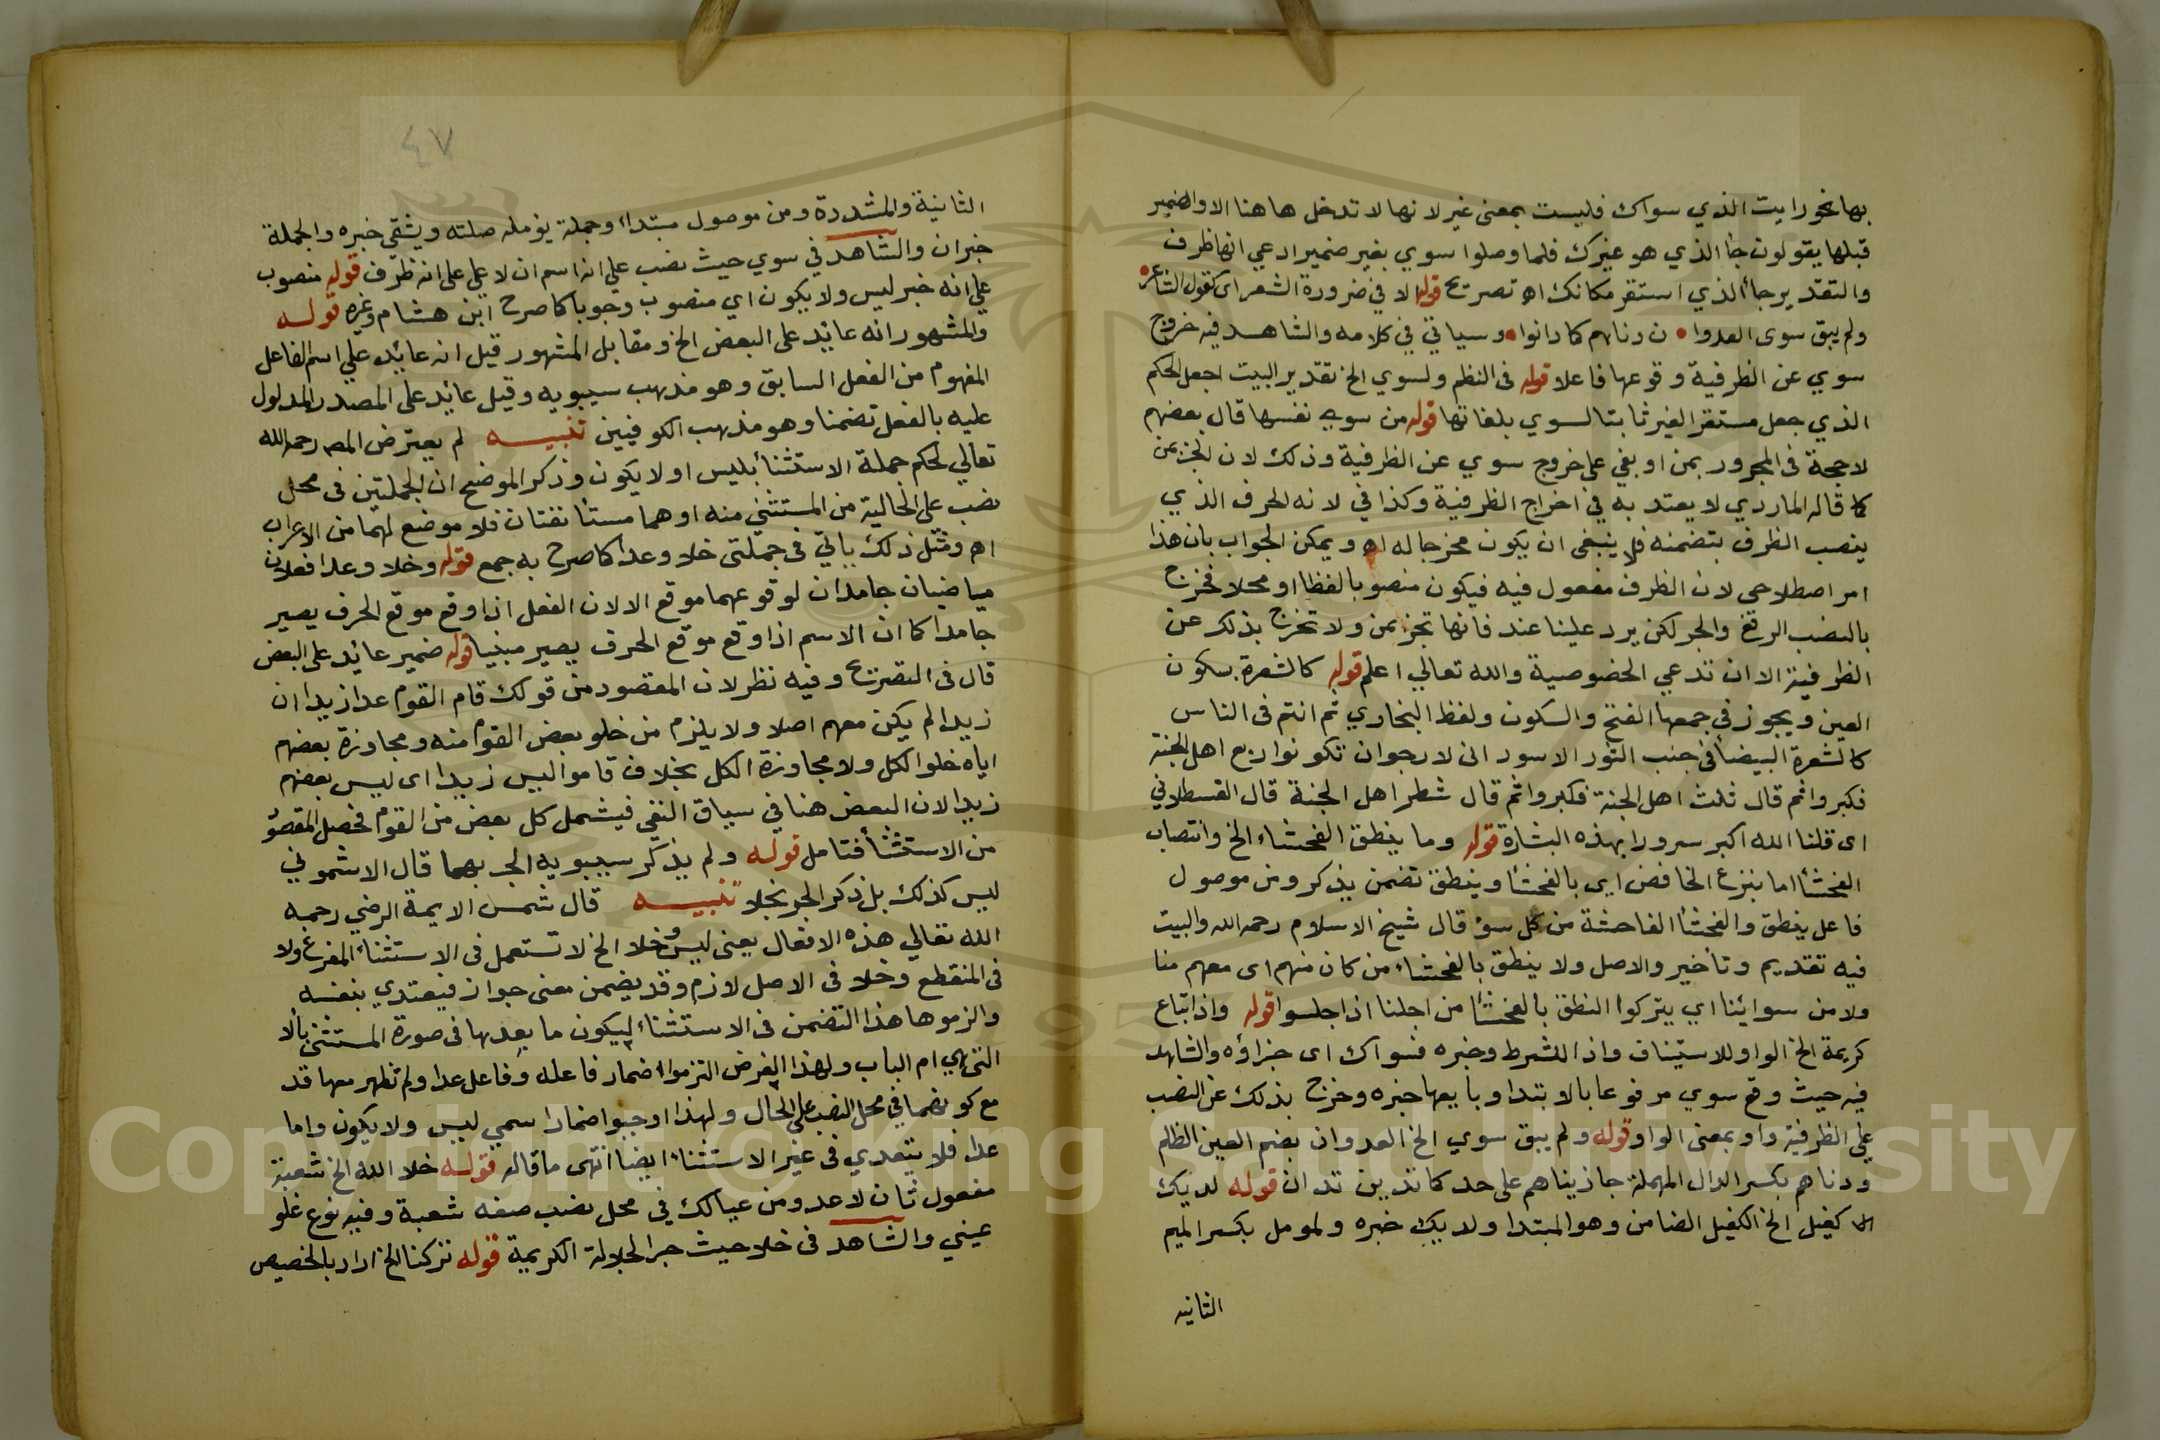 بها نحو رايت الذي سواك فليست بمعنى غير لانها لا تدخل هاهنا الا والضمير
قبلها يقولون جا الذي هو غيرك فلما وصلوا سوي بغير ضمير ادعي انها ظرف
والتقدير جاء الذي استقر مكانك اه تصريح قوله الا في ضرورة الشعر اي كقول الشاعر
ولم يبق سوى العدوا ن دناهم كما دانوا وسياتي في كلامه والشاهد فيه خروج
سوي عن الظرفية وقوعها فاعلا قوله في النظم ولسوي الخ تقدير البيت اجعل الحكم
الذي جعل مستقرا لغير ثابتا لسوي بلغاتها قوله من سوي نفسها قال بعضهم
لا حجة في المجرور بمن او بفي على خروج سوي عن الظرفية وذلك لان الجر بمن
كما قاله الماردي لا يعتد به في اخراج الظرفية وكذا في لانه الحرف الذي
ينصب الظرف بتضمنه فلا ينبغي ان يكون مخرجا له اه ويمكن الجواب بان هذا
امر اصطلاحي لان الظرف مفعول فيه فيكون منصوبا لفظا او محلا فخرج
بالنصب الرفع والجر لكن يرد علينا عند فانها تجر بمن ولا تخرج بذلك عن
الظرفية الا ان تدعي الخصوصية والله تعالي اعلم قوله كالشعرة بسكون
العين ويجوز في جمعها الفتح والسكون ولفظ البخاري ثم انتم في الناس
كالشعرة البيضا في جنب الثور الاسود اني لارجوان تكونوا ربع اهل الجنة
فكبروا ثم قال ثلث اهل الجنة فكبروا ثم قال شطر اهل الجنة قال القسطلاني
اى قلنا الله اكبر سرورا بهذه البشارة قوله وما ينطق الفحشاء الخ وانتصاب
الفحشا اما بنزع الخافض اي بالفحشا وينطق تضمن يذكر ومن موصول
فاعل ينطق والفحشا الفاحشة من كل سؤ قال شيخ الاسلام رحمه الله والبيت
فيه تقديم وتاخير والاصل ولا ينطق بالفحشاء من كان منهم اى معهم منا
ولا من سوائنا اي يتركوا النطق بالفحشا من اجلنا اذا جلسوا قوله واذا تباع
كريمة الخ الواو للاستيناف واذا للشرط وخبره فسواك اى جزاؤه والشاهد
فيه حيث وقع سوي مرفوعا بالابتدا وبايعها خبره وخرج بذلك عن النصب
علي الظرفية واو بمعنى الواو قوله ولم يبق سوي الخ العدوان بضم العين الظلم
ودناهم بكسر الدال المهملة جازيناهم على حد كما تدين تدان قوله لديك
كفيل الخ الكفيل الضامن وهو المبتدا ولديك خبره ولمومل بكسر الميم
الثانيه
٤٧
الثانية والمشددة ومن موصول مبتداء وجملة يؤمله صلته ويشقي خبره والجملة
خبر ان والشاهد في سوي حيث نصب على انه اسم ان لا علي على انه ظرف قوله منصوب
على انه خبر ليس ولا يكون اي منصوب وجوبا كما صرح ابن هشام وغيره قوله
والمشهور انه عايد على البعض الخ ومقابل المشهور قيل انه عائد علي اسم الفاعل
المفهوم من الفعل السابق وهو مذهب سيبويه وقيل عائد على المصدر المدلول
عليه بالفعل تضمنا وهو مذهب الكوفيين تنبيه لم يعترض المص رحمه الله
تعالي لحكم جملة الاستثنا بليس او لا يكون وذكر الموضح ان الجملتين في محل
نصب على الحالية من المستثنى منه او هما مستانفتان فلا موضع لهما من الاعراب
اه ومثل ذلك ياتي في جملتي خلا وعدا كما صرح به جمع قوله وخلا وعدا فعلان
ماضيان جامدان لوقوعهما موقع الا لان الفعل اذا وقع موقع الحرف يصير
جامدا كما ان الاسم اذا وقع موقع الحرف يصير مبنيا قوله ضمير عائد على البعض
قال في التصريح وفيه نظر لان المقصود من قولك قام القوم عدا زيدا ان
زيدا لم يكن معهم اصلا ولا يلزم من خلو بعض القوم منه ومجاوزة بعضهم
اياه خلوا لكل ولا مجاوزة الكل بخلاف قاموا ليس زيدا اى ليس بعضهم
زيدا لان البعض هنا في سياق النفي فيشمل كل بعض من القوم فحصل المقصو
من الاستثنا فتامل قوله ولم يذكر سيبويه الجر بهما قال الاشموني
ليس كذلك بل ذكر الجر بخلا تنبيه قال شمس الايمة الرضي رحمه
الله تعالي هذه الافعال يعنى ليس وخلا الخ لا تستعمل في الاستثناء المفرغ ولا
في المنقطع وخلا في الاصل لازم وقد يضمن معنى جواز فيتعدي بنفسه
والزموها هذا التضمن في الاستثناء ليكون ما بعدها في صورة المستثنى بالا
التي هي ام الباب ولهذا الغرض التزموا اضمار فاعله وفاعل عدا ولم تظهر معها قد
مع كونهما في محل النصب على الحال ولهذا اوجبوا اضمار اسمي ليس ولا يكون واما
عدا فلا يتعدي في غير الاستثناء ايضا انتهى ما قاله قوله خلا الله الخ شعبة
مفعول ثان لاعد ومن عيالك في محل نصب صفه شعبة وفيه نوع غلو
عيني والشاهد في خلا حيث جر الجلالة الكريمة قوله تركنا الخ اراد بالحضيض
Copyright © King Saud University